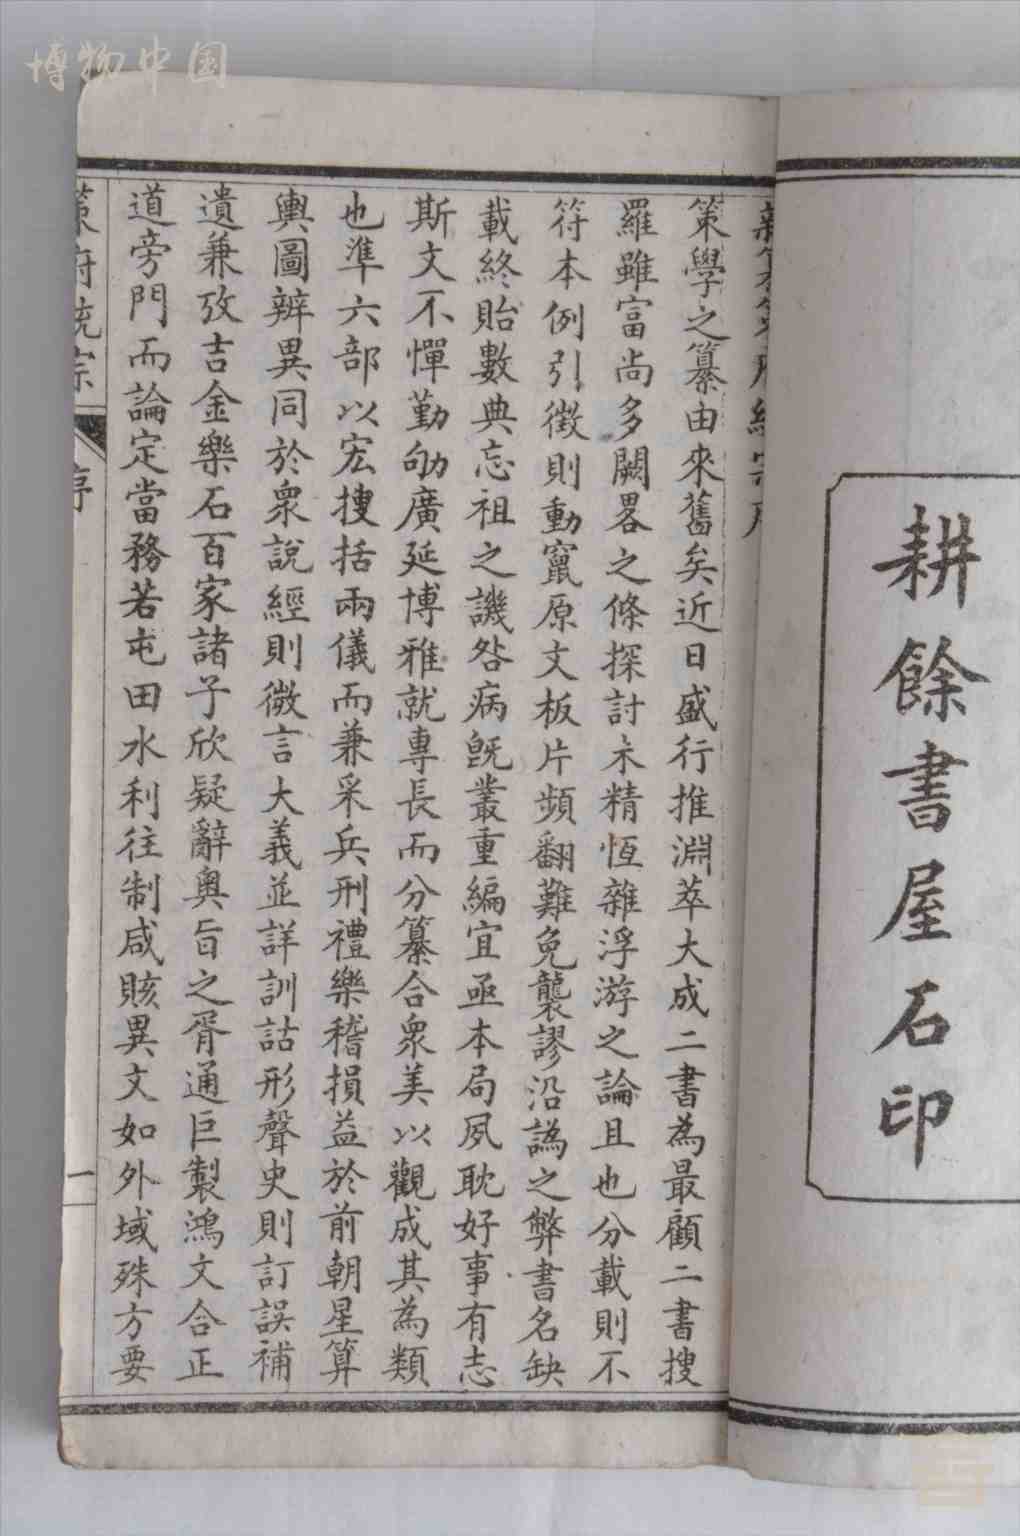 博物中国
耕餘書屋石印
策學之纂由來舊矣近日盛行推淵萃大成二書為最顧二書搜
羅雖富尚多闕畧之條探討未精恆雜浮游之論且也分載則不
符本例引徵則動竄原文板片頻翻難免襲謬沿譌之弊書名缺
載終貽數典忘祖之譏咎病旣叢重編宜亟本局夙耽好事有志
斯文不憚勤劬廣延博雅就專長而分纂合衆美以觀成其為類
也準六部以宏搜括兩儀而兼采兵刑禮樂稽損益於前朝星算
輿圖辨異同於衆說經則微言大義並詳訓詁形聲史則訂誤補
遺兼攷吉金樂石百家諸子欣疑辭奥旨之胥通巨製鴻文合正
道旁門而論定當務若屯田水利往制咸賅異文如外域殊方要
策府統宗 序 一